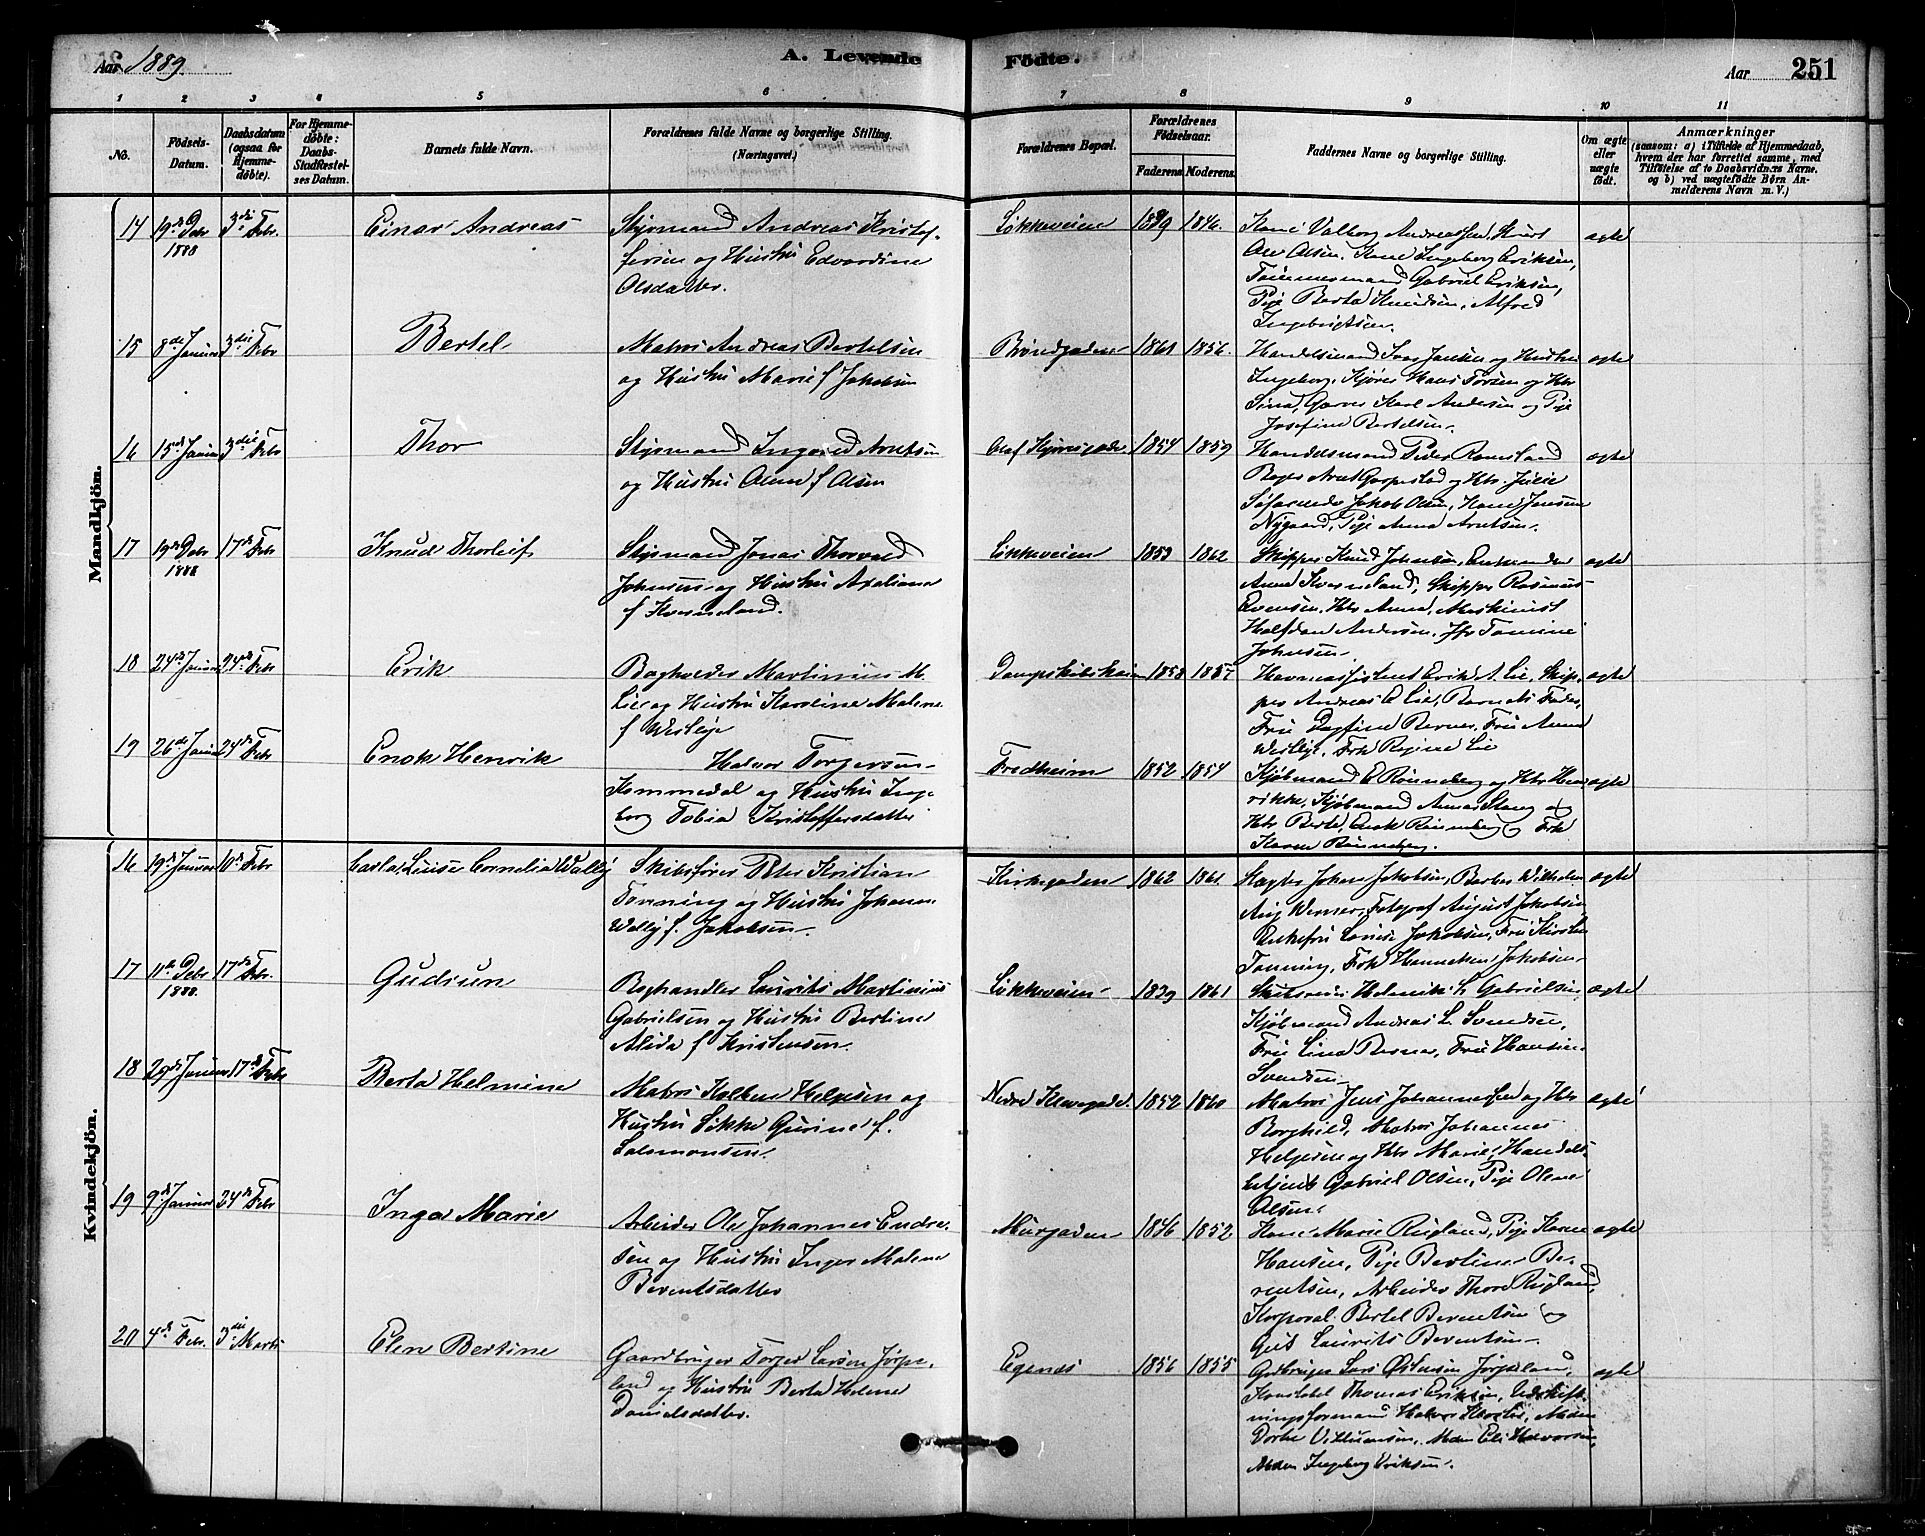 Aar 1889.
A. Levende
Födte.
Aar
251
1 2 3 4 5 6 7 8 9 10 11
No.
Födsels-
Datum.
Daabsdatum
(ogsaa for
Hjemme-
døbte).
For Hjemme-
døbte:
Daabs-
Stadfæstel-
ses Datum.
Barnets fulde Navn.
Forældrenes fulde Navne og borgerlige Stilling.
(Næringsvei.)
Forældrenes Bopæl.
Forældrenes
Födselsaar.
Faderens
Moderens.
Faddernes Navne og borgerlige Stilling.
Om ægte
eller
uægte
født.
Anmærkninger
(saasom: a) i Tilfælde af Hjemmedaab,
hvem der har forrettet samme, med
Tilföielse af to Daabsvidners Navne.
og b) ved uægtefödte Börn An-
melderens Navn m. V.)
Mandkjön.
14 19de Debr 1888 3die Febr. Einar Andreas
Styrmand Andreas Kristof-
fersen og Hustru Edvardine
Olsdatter.
Løkkeveien 1839 1846.
Kone Valborg Andreassen, Snedker
Ole Olsen, Kone Ingeborg Eriksen,
Tømmermand Gabriel Eriksen,
Pige Berta Knudsen, Alfred
Ingebrigtsen.
ægte
15 8de Januar 3die Febr Bertel
Matros Andreas Bertelsen
og Hustru Marie f. Jakobsen
Brøndgaden 1861 1856.
Handelsmand Ivar Jansen og Hustru
Ingeborg, Kjører Hans Torsen og Htr
Sina, Garver Karl Andersen og Pige
Josefine Bertelsen.
ægte
16 15de Januar 3die Febr Thor
Styrmand Ingvald Arntsen
og Hustru Olene f Olsen
Olaf Kyrresgade 1854 1859
Handelsmand Peder Ramsland
Bager Arnt Gorpestad og Htr. Julie
Søfarende Jakob Olsen, Kone Jensine
Nygaard, Pige Anna Arntsen.
ægte
17 19de Debr 1888 17de Febr Knud Thorleif
Styrmand Jonas Thorvald
Johnsen og Hustru Axeliane
f Kverneland.
Løkkeveien 1859 1862
Skipper Knud Johnsen, Enkemadam
Anne Kverneland, Skipper Rasmus
Evensen, Htr Anna, Maskinist
Halfdan Andersen, Jfr Tomine
Johnsen
ægte
18 24de Januar 24de Febr Erik
Bogholder Martinius M.
Lie og Hustru Karoline Malene
f Weslye
Dampskibskaien 1858 1857
Havneassistent Erik A. Lie, Skip-
per Andreas E Lie, Barnets Fader,
Fru Dagfine Berner, Fru Anna
Weslye, Frk Regine Lie
ægte
19 26de Januar 24de Febr Enok Henrik
Halvor Torgersen
Kommedal og Hustru Inge-
borg Tobia Kristoffersdatter
Fredheim 1852 1854
Kjøbmand E Rönneberg og Htr Hen-
rikke, Kjøbmand Annar Stang og
Htr Berte, Enok Rönneberg og Frk
Karen Rönneberg.
ægte
Kvindekjön.
16 19de Januar 10de Febr Carla Louise Cornelia Wally
Skibsfører Peter Kristian
Tonning og Hustru Johanne
Wally f. Jakobsen
Kirkegaden 1862 1861
Slagter Johan Jakobsen, Barber Wilhelm
Aug Werner, Fotograf August Jakobsen
Enkefru Lovise Jakobsen, Fru Kirsten
Tonning, Frk Hanneken Jakobsen
ægte
17 11te Debr 1888. 17de Febr. Gudrun
Boghandler Lauritz Martinius
Gabrielsen og Hustru Bertine
Alida f Kristensen.
Løkkeveien 1839 1861
Skibsreder Helmik S Gabrielsen,
Kjøbmand Andreas L. Svendsen,
Fru Lina Berner, Fru Hansine
Svendsen
ægte
18 29de Januar 17de Febr Berta Helmine
Matros Kolben Helgesen og
Hustru Sikke Gurine f.
Salomonsen.
Nedre Klevegade. 1852 1860
Matros Jens Johannessen og Htr
Borghild, Matros Johannes
Helgesen og Htr Marie, Handels-
betjent Gabriel Olsen, Pige Olene
Olsen.
ægte
19 9de Januar 24de Febr Inga Marie
Arbeider Ole Johannes Endre-
sen og Hustru Inger Malene
Berentsdatter
Murgaden 1846 1852
Kone Marie Rugland, Pige Karen
Hansen, Pige Bertine Be-
rentsen, Arbeider Thore Rugland,
Korporal Bertel Berentsen og
Gut Laurits Berentsen
ægte
20 4de Febr. 3die Marts Elen Bertine
Gaardbruger Torger Larsen Jørpe-
land og Hustru Berta Helene
Danielsdatter.
Egenes 1856 1855
Gdbruger Lars Østensen Jørpeland,
Konstabel Thomas Eriksen, Udskift-
ningsformand Halvor Kloster, Madam
Dorte Villumsen, Madm Eli Halvorsen,
Madm Ingeborg Eriksen.
ægte